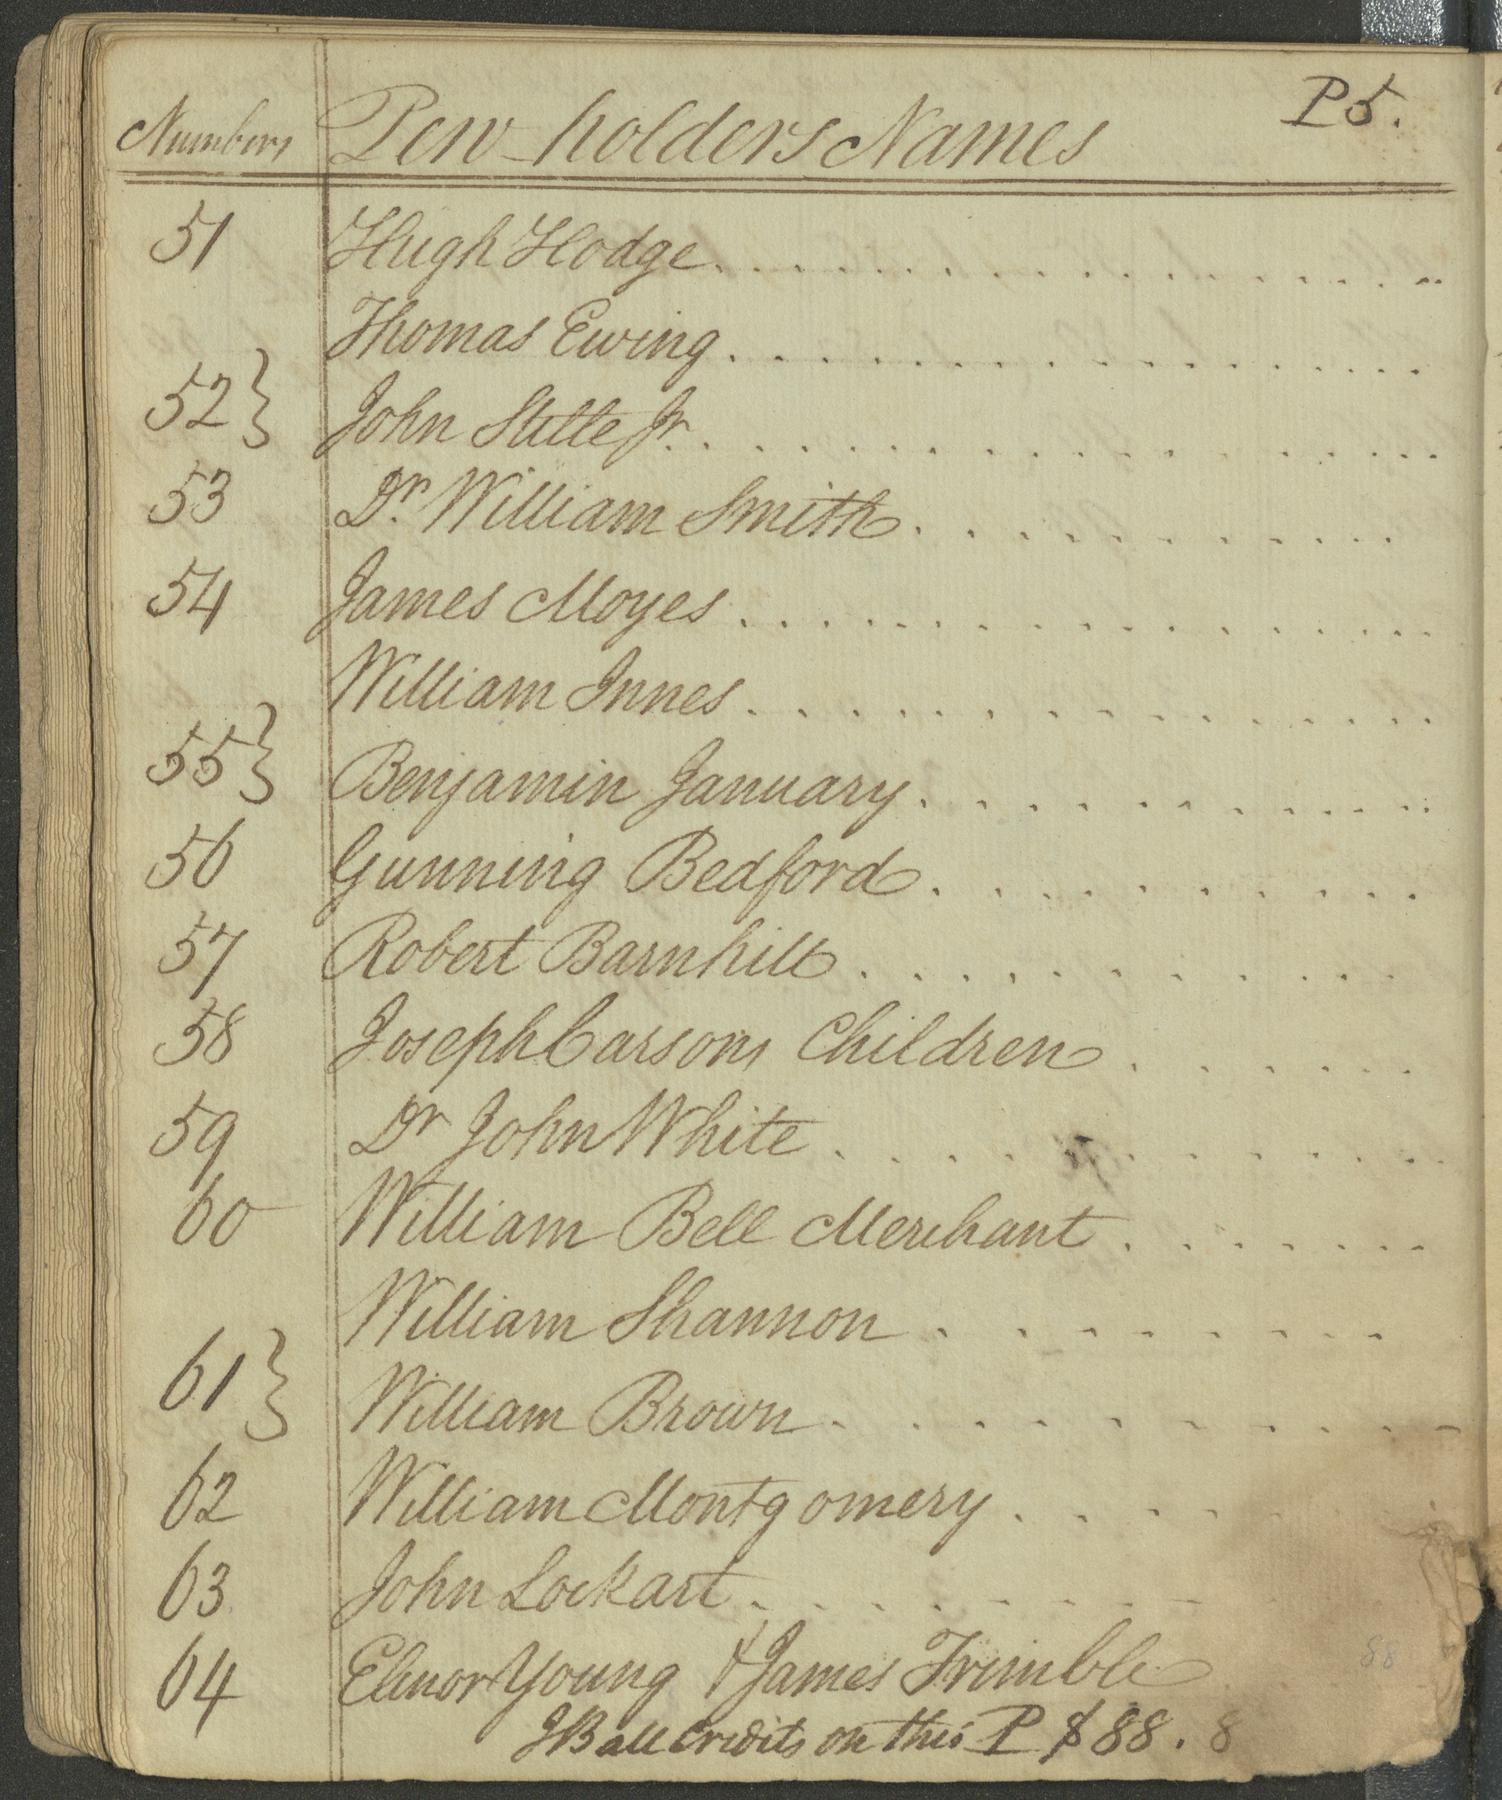 P5.
Numbers Pew-holders Names
51 Hugh Hodge
Thomas Ewing
52} John Stille Jr.
53 Dr. William Smith
54 James Moyes
William Innes
55} Benjamin January
56 Gunning Bedford
57 Robert Barnhill
58 Joseph Carsons Children
59 Dr John White
60 William Bell Merchant
William Shannon
61} William Brown
62 William Montgomery
63 John Lockart
64 Elinor Young & James Trimble
88
all credits on this P $88.8